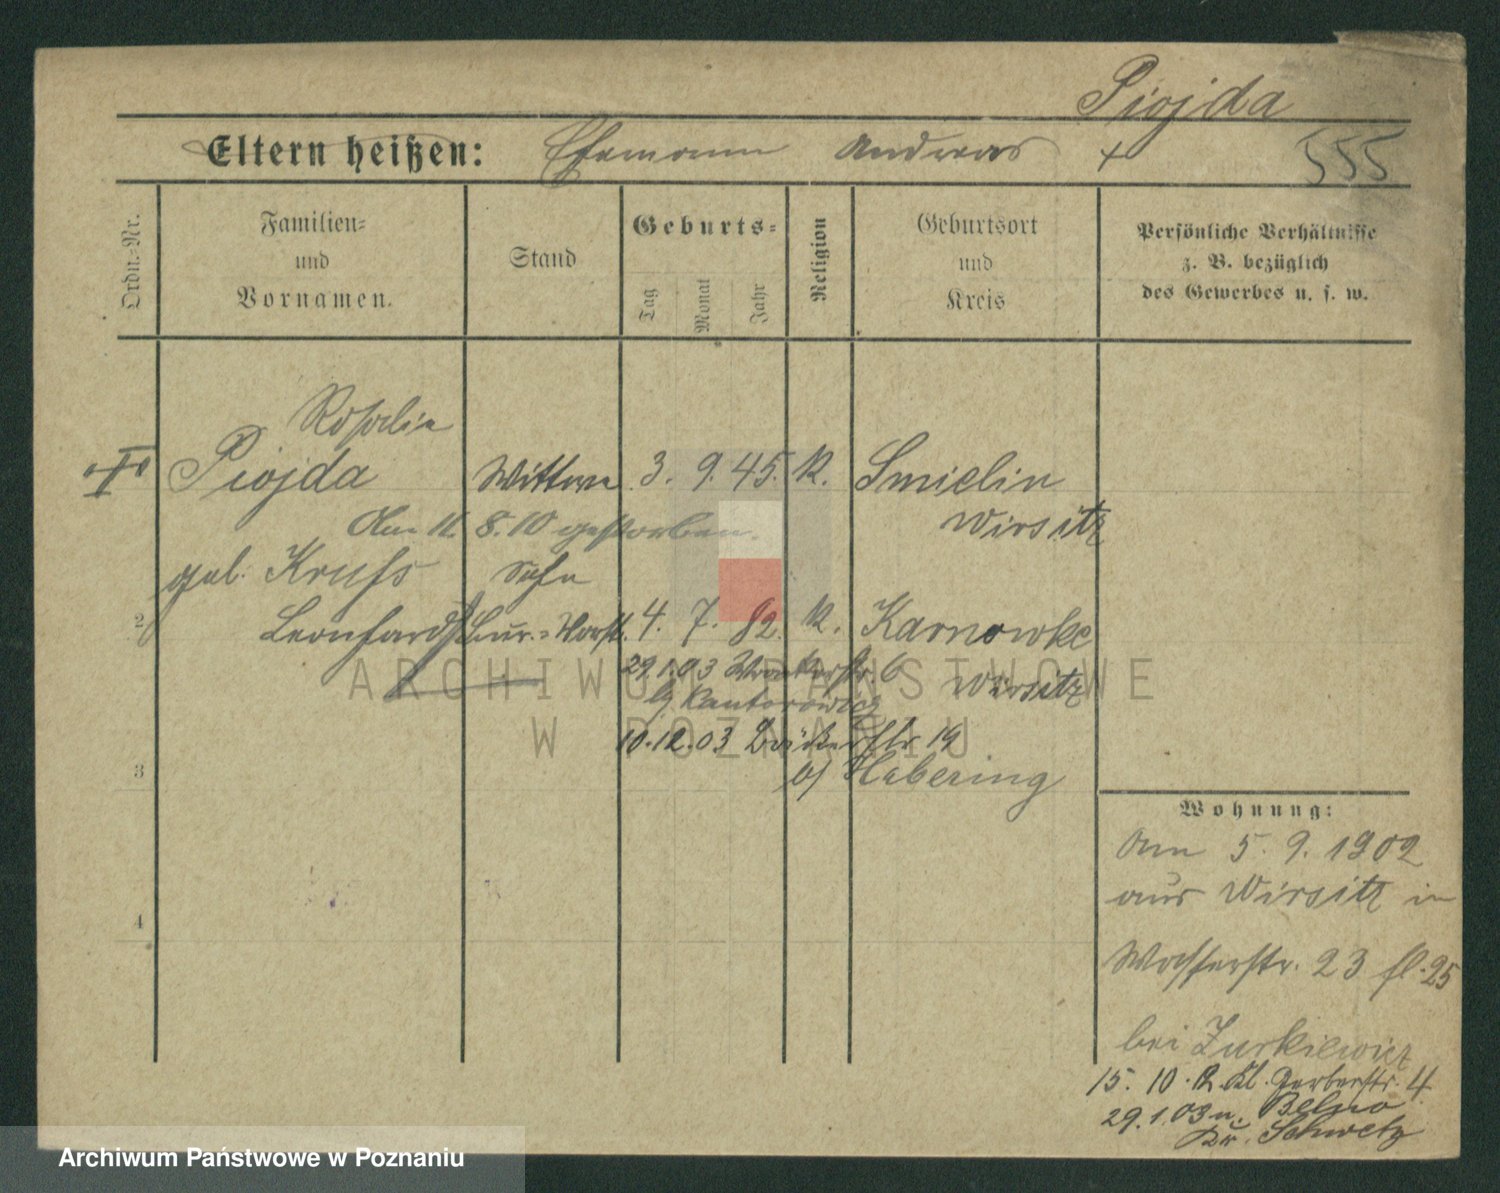 Piojda
Eltern heißen: Ehemann Andreas +
555
Ordn.-Nr.
Familien-
und
Vornamen.
Stand
Geburts-
Tag
Monat
Jahr
Religion
Geburtsort
und
Kreis
Persönliche Verhältnisse
z. B. bezüglich
des Gewerbes u. s. w.
Rosalie
Piojda Wittwe 3. 9. 45. K. Smielin
Wirsitz
Am 11. 8. 10 gestorben.
geb. Krufs Sohn
2 Leonhard Bur.-Vorst. 4. 7. 82. K. Karnowke
Wirsitz
29.1.03 Wronkerstr. 6
b/ Kantorowicz
10.12.03 Bäckerstr 19
b/ Habering
3
4
Wohnung:
Am 5. 9. 1902
aus Wirsitz in
Wasserstr. 23 fl. 25
bei Zurkiewicz
15. 10. 2. Kl. Gerberstr. 4
29.1.03 n. Belno
Kr. Schwetz
ARCHIWUM PAŃSTWOWE
W POZNANIU
Archiwum Państwowe w Poznaniu